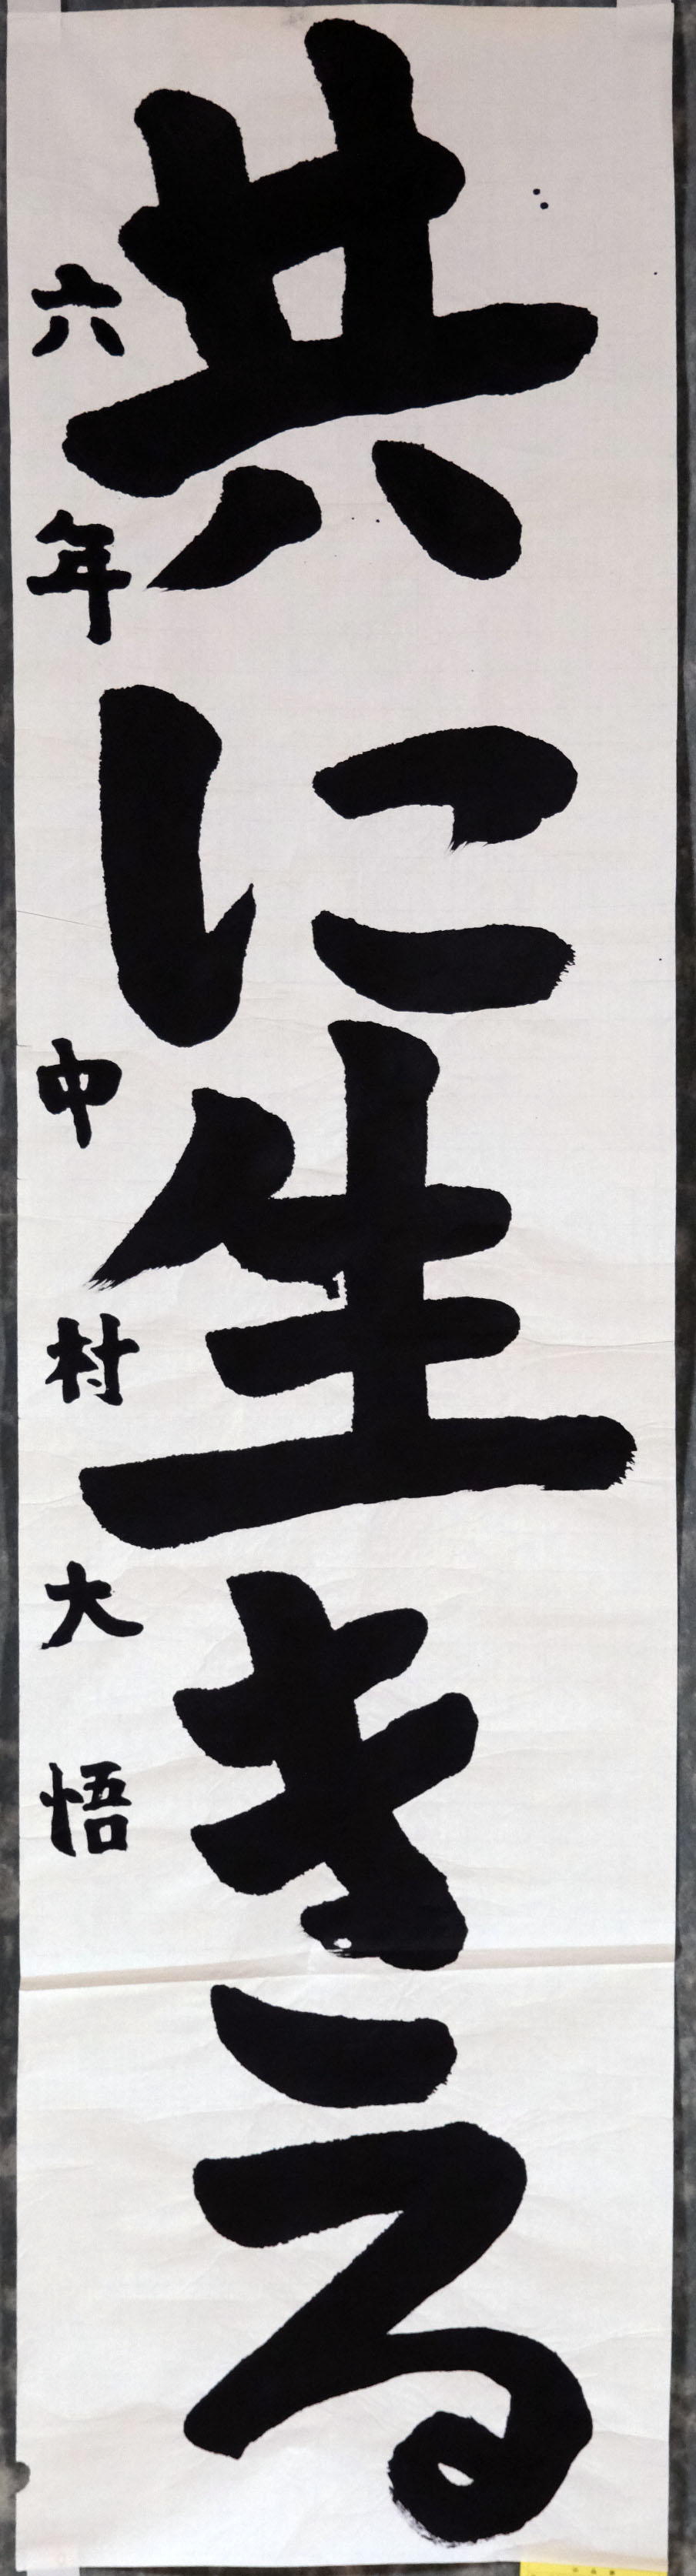 共に生きる
六年 中村大悟